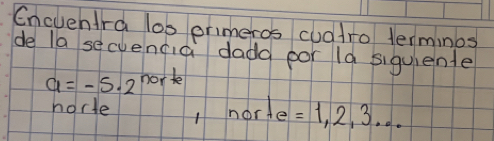 Encuentra los primeros cuatro terminos
de la secuencia dada por la siguiente
a = -5.2 norte
norte , norte = 1,2,3...